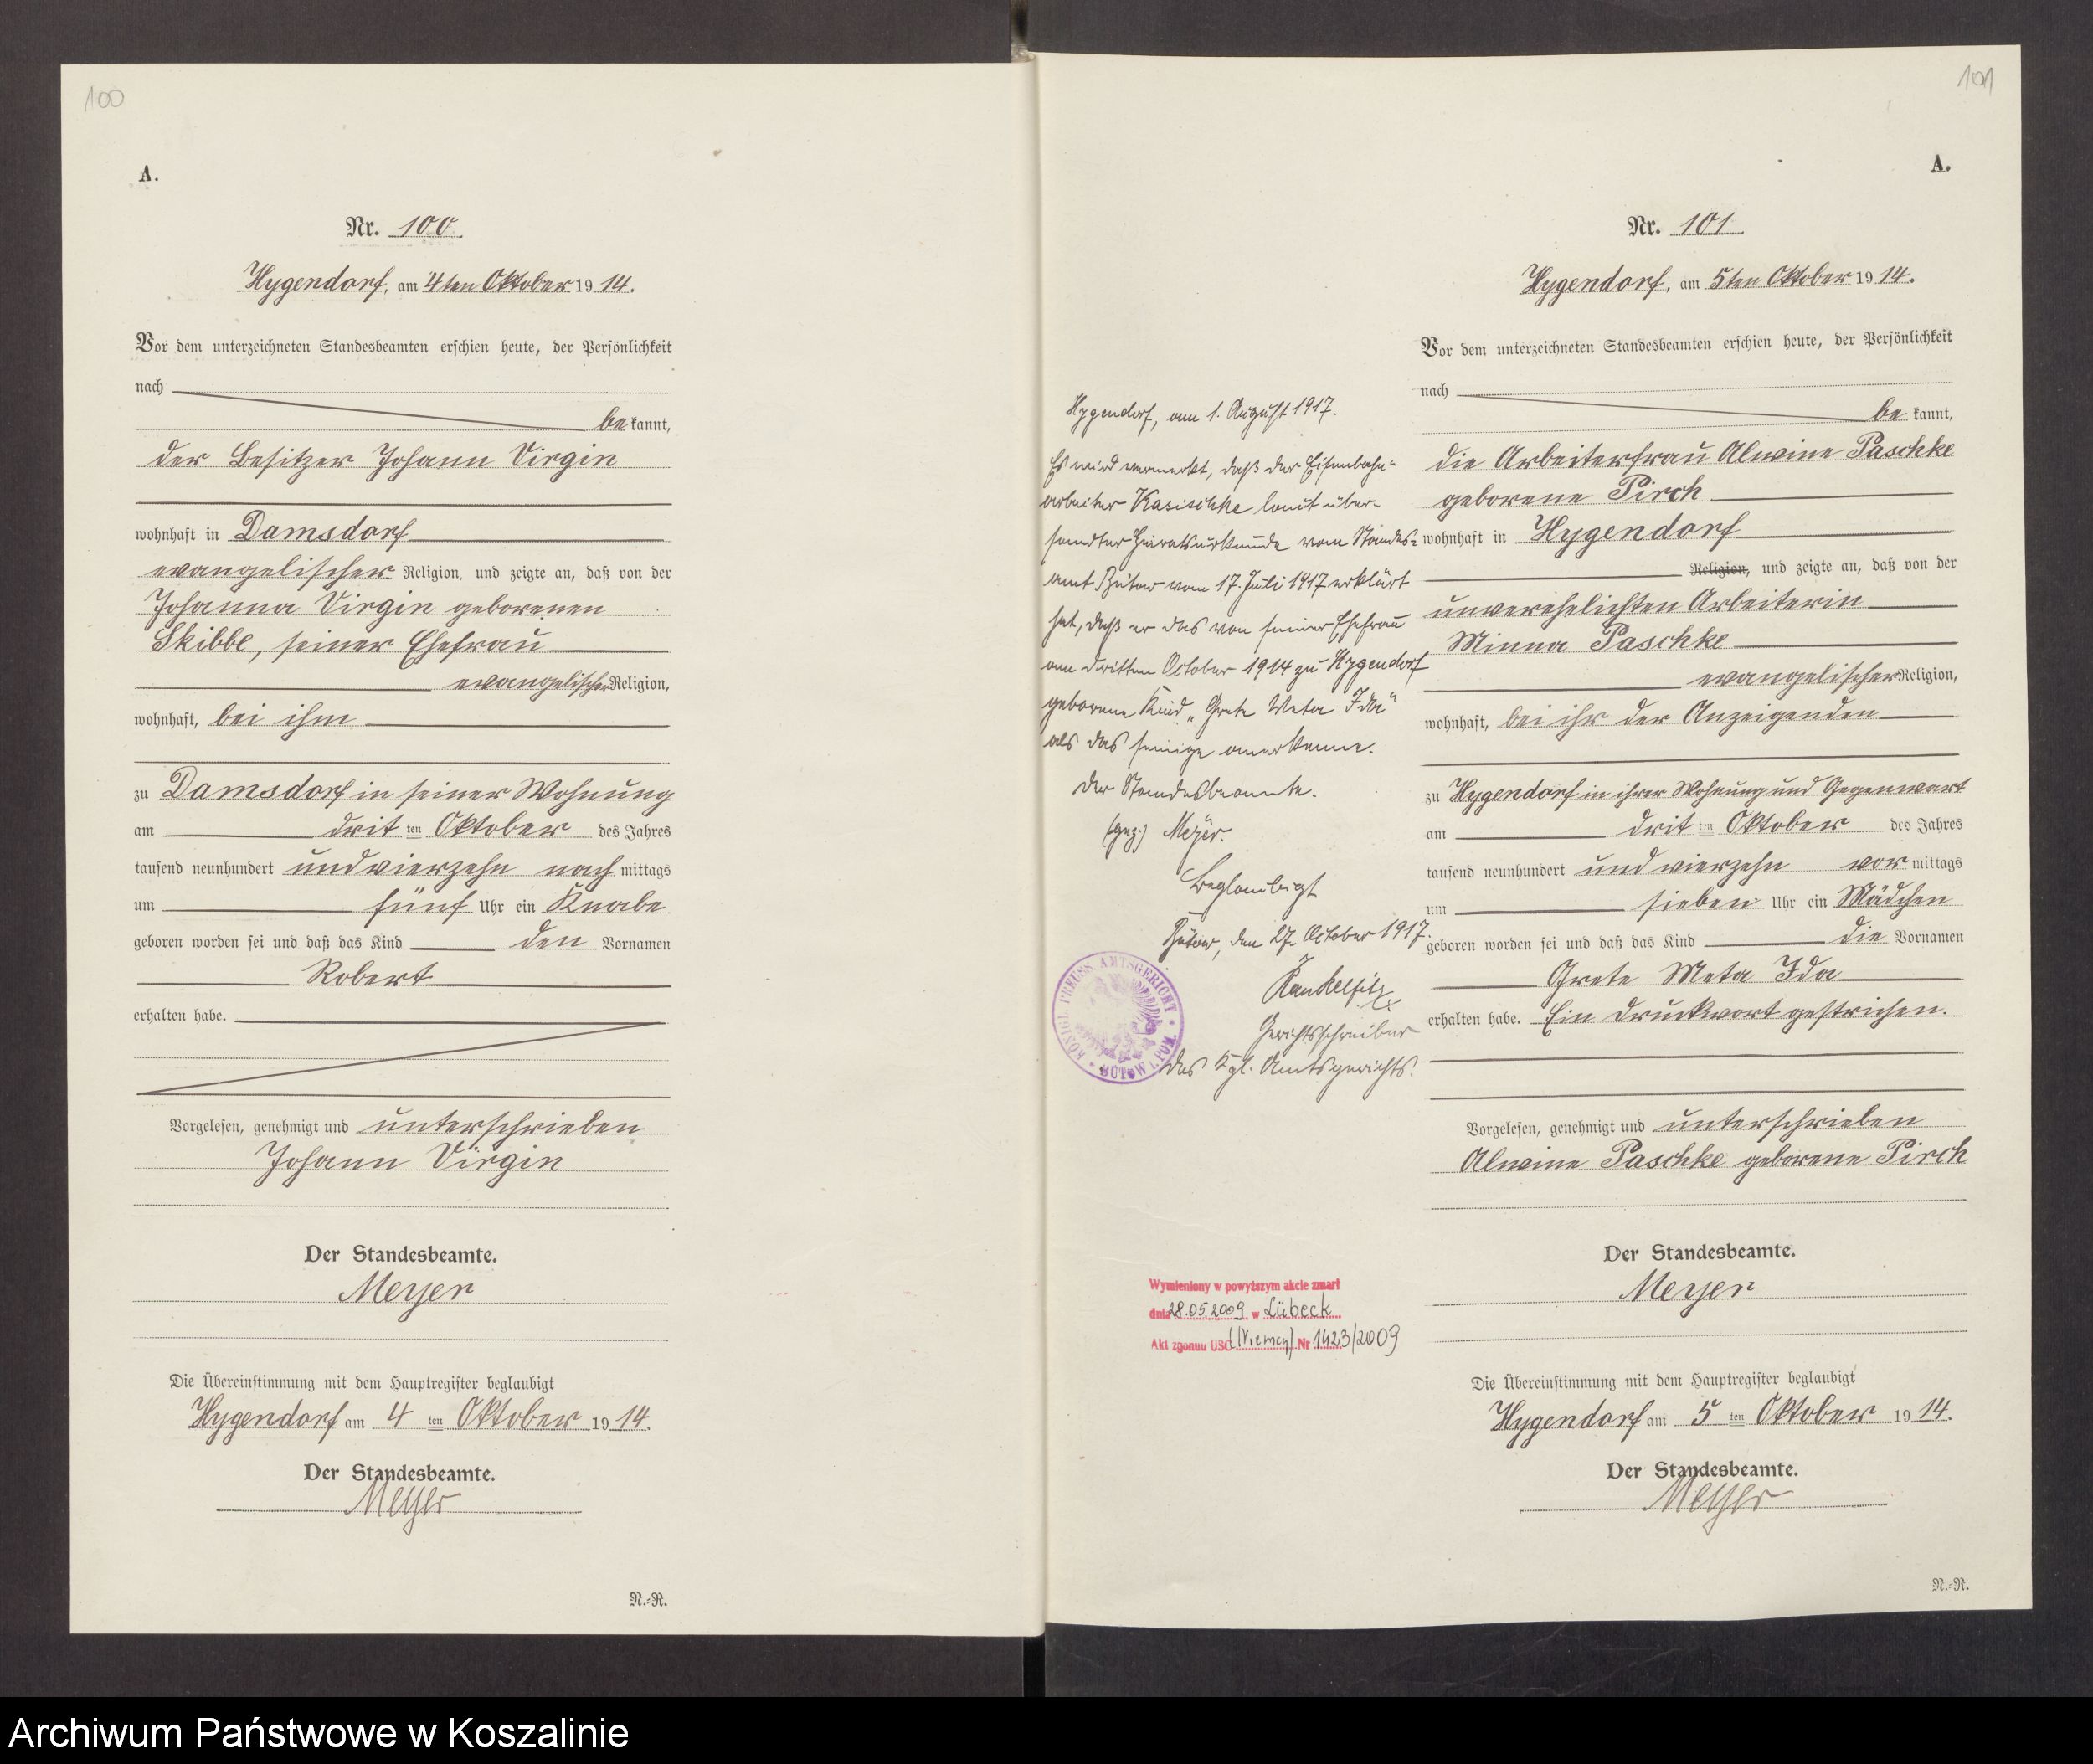 100
A.
Nr. 100.
Hygendorf, am 4ten Oktober 1914.
Vor dem unterzeichneten Standesbeamten erschien heute, der Persönlichkeit
nach
be kannt,
der Besitzer Johann Virgin
wohnhaft in Damsdorf
evangelischer Religion, und zeigte an, daß von der
Johanna Virgin geborenen
Skibbe, seiner Ehefrau
evangelischer Religion,
wohnhaft, bei ihm
zu Damsdorf in seiner Wohnung
am drit ten Oktober des Jahres
tausend neunhundert und vierzehn nach mittags
um fünf Uhr ein Knabe
geboren worden sei und daß das Kind den Vornamen
Robert
erhalten habe.
Vorgelesen, genehmigt und unterschrieben
Johann Virgin
Der Standesbeamte.
Meyer
Die Übereinstimmung mit dem Hauptregister beglaubigt
Hygendorf am 4 ten Oktober 1914.
Der Standesbeamte.
Meyer
N.=R.
101
A.
Nr. 101.
Hygendorf, am 5ten Oktober 1914.
Vor dem unterzeichneten Standesbeamten erschien heute, der Persönlichkeit
nach
be kannt,
die Arbeiterfrau Alwine Paschke
geborene Pirch
wohnhaft in Hygendorf
Religion, und zeigte an, daß von der
unverehelichten Arbeiterin
Minna Paschke
evangelischer Religion,
wohnhaft, bei ihr der Anzeigenden
zu Hygendorf in ihrer Wohnung und Gegenwart
am drit ten Oktober des Jahres
tausend neunhundert und vierzehn vor mittags
um sieben Uhr ein Mädchen
geboren worden sei und daß das Kind die Vornamen
Grete Meta Ida
erhalten habe. Ein Druckwort gestrichen.
Vorgelesen, genehmigt und unterschrieben
Alwine Paschke geborene Pirch
Der Standesbeamte.
Meyer
Die Übereinstimmung mit dem Hauptregister beglaubigt
Hygendorf am 5 ten Oktober 1914.
Der Standesbeamte.
Meyer
N.=R.
Hygendorf, am 1. August 1917.
Es wird vermerkt, daß der Eisenbahn-
arbeiter Kasischke laut über-
sandter Heiratsurkunde vom Standes-
amt Bütow vom 17. Juli 1917 erklärt
hat, daß er das von seiner Ehefrau
am dritten October 1914 zu Hygendorf
geborene Kind „Grete Meta Ida“
als das seinige anerkenne.
Der Standesbeamte.
(gez.) Meyer.
Beglaubigt
Bütow, den 27. October 1917.
Gerichtsschreiber
des Kgl. Amtsgerichts.
KÖNIGL. PREUSS. AMTSGERICHT
BÜTOW I. POM.
Wymieniony w powyższym akcie zmarł
dnia 28.05.2009 w Lübeck
Akt zgonu USC (Niemcy) Nr 1423/2009
Archiwum Państwowe w Koszalinie